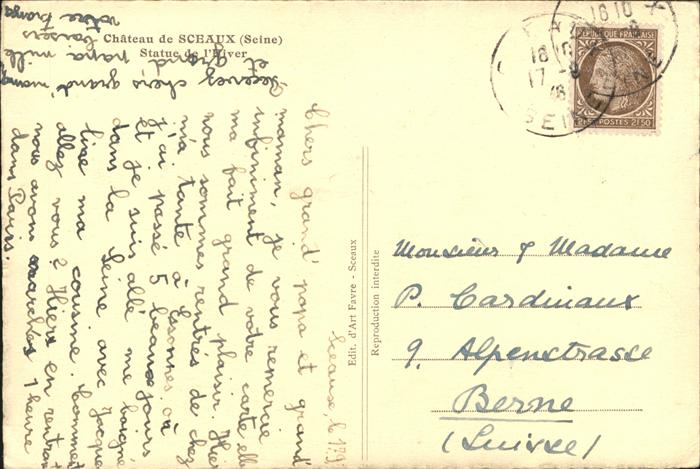 Château de SCEAUX (Seine)
Statue de l'Hiver
Sceaux, le 17.9
Chers grand' papa et grand'
maman, je vous remercie
infiniment de votre carte elle
ma fait grand plaisir. Hier
nous sommes rentrés de chez
ma tante à Essonnes où
j'ai passé 5 beaux jours
et je suis allé me baigné
dans la Seine avec Jacque
lise ma cousine. Comment
allez vous? Hier en rentran
nous avons marchés 1 heure
dans Paris.
Recevez chers grand' maman
et grand papa mille
baisers
votre
Edit. d'Art Favre - Sceaux
Reproduction interdite
REPUBLIQUE FRANÇAISE
2F50 POSTES 2F50
18 10
17 -9
SEINE
Monsieur & Madame
P. Cardinaux
9, Alpenstrasse
Berne
(Suisse)